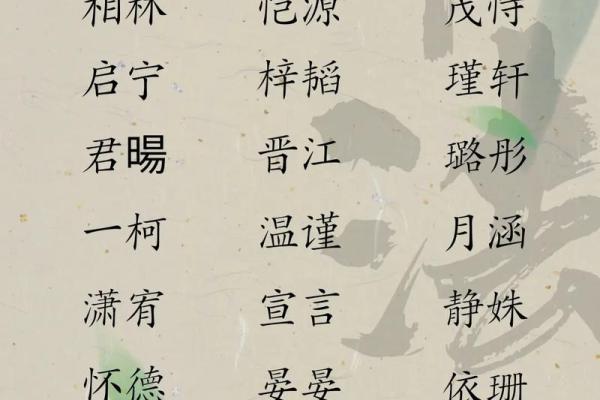 相林 恺源 茂恃
启宁 梓韬 瑾轩
君暘 晋江 璐彤
一柯 温谨 月涵
潇宥 宣言 静姝
怀德 晏晏 依珊